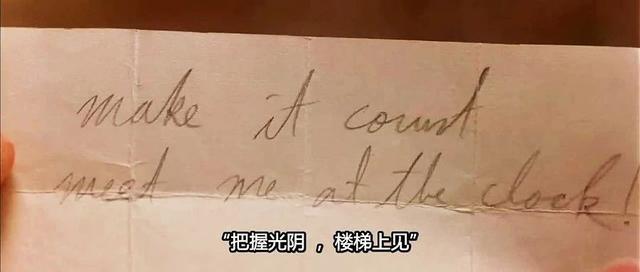 make it count
meet me at the clock!
“把握光阴 ，楼梯上见”